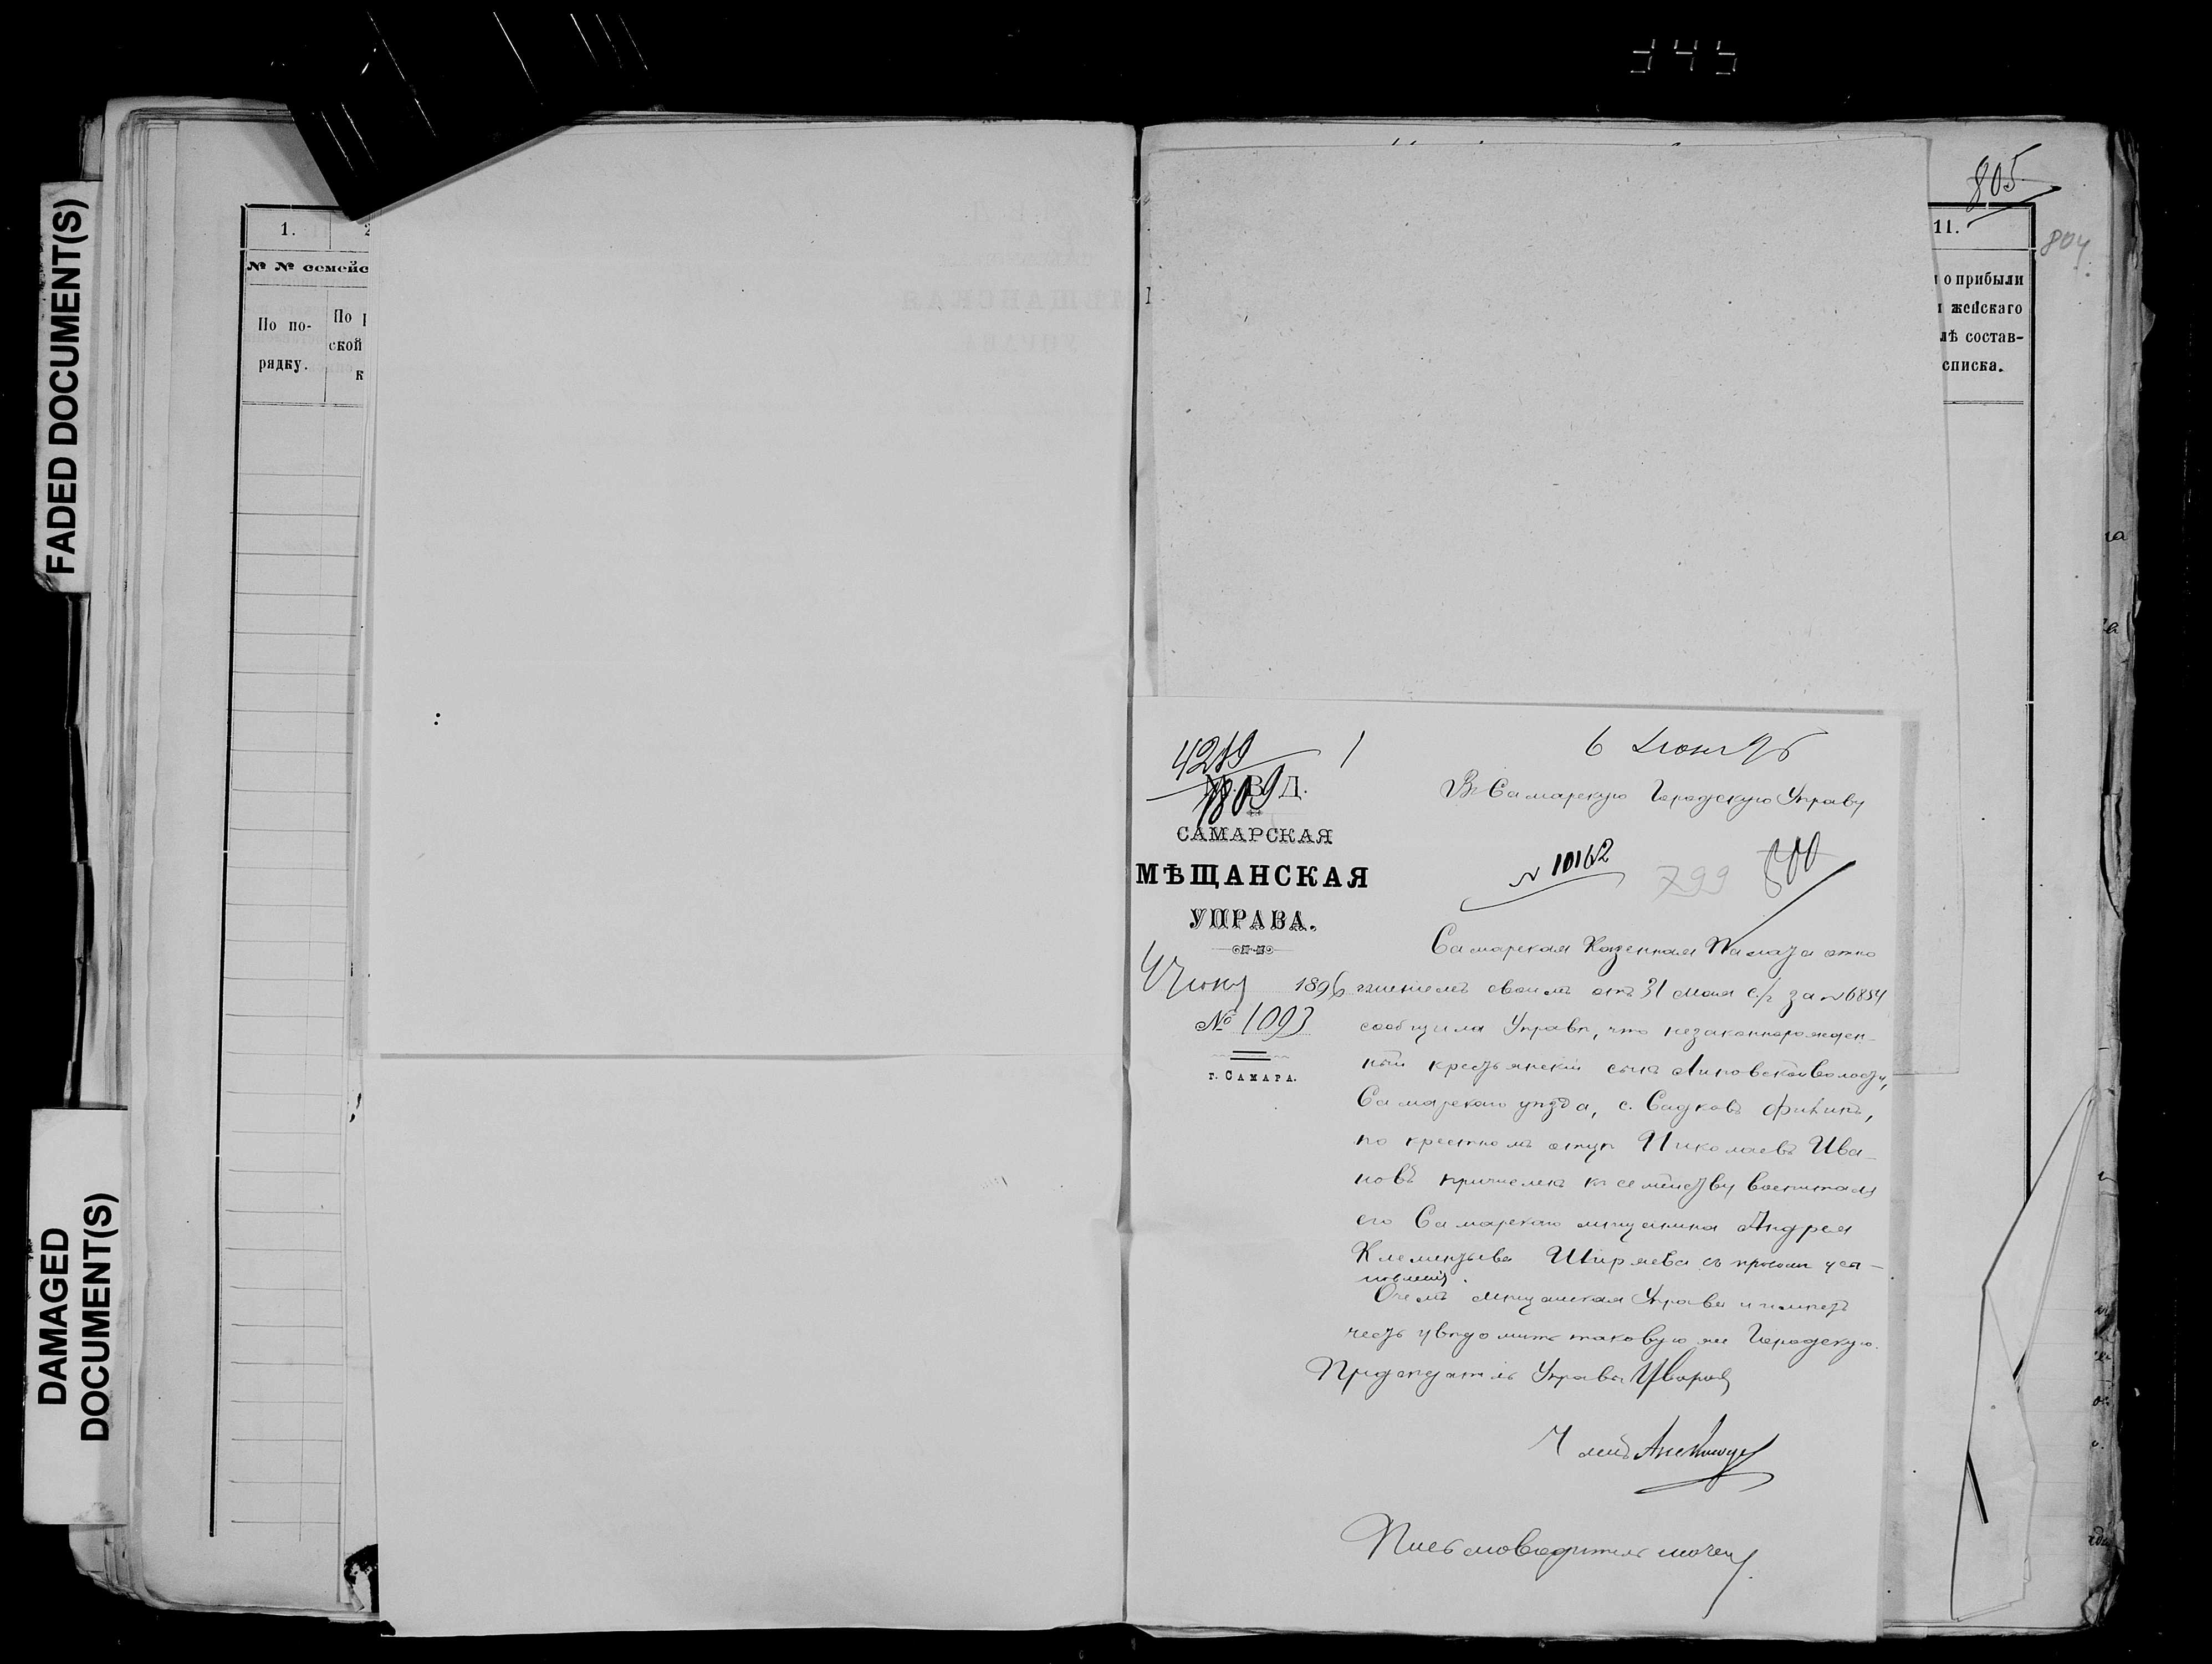 545
FADED DOCUMENT(S)
DAMAGED
DOCUMENT(S)
1.
№ № семейс
По по-
рядку.
По р
ской
к
805
804
11.
о прибыли
женскаго
лѣ состав-
списка.
4289
1809
1
6 Июня 96
М.В.Д.
САМАРСКАЯ
МѢЩАНСКАЯ
УПРАВА.
Въ Самарскую Городскую Управу
N 10162
799 800
4 Июня 1896
№ 1093
г. САМАРА.
Самарская Казенная Палата отно
шеніемъ своимъ отъ 31 Мая с/г за N 6854
сообщила Управѣ, что незаконнорожден-
ный крестьянскій сынъ Липовской волости,
Самарскаго уѣзда, с. Садковъ Филипъ,
по крестномъ отцѣ Николаевъ Ива-
новъ причисленъ къ семейству воспитат
его Самарскаго мѣщанина Андрея
Клементьева Ширяева съ правом усы-
новленія.
О чемъ Мѣщанская Управа и имѣетъ
честь увѣдомить таковую же Городскую.
Предсѣдатель Управы Уваровъ
Членъ
Письмоводитель